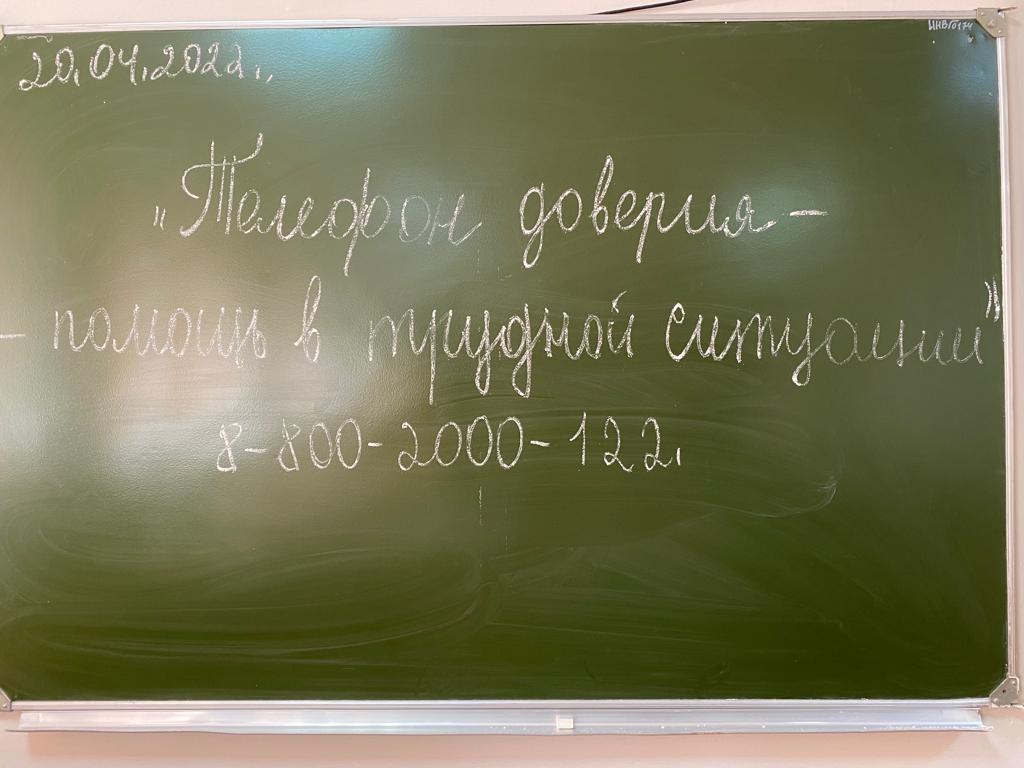 20.04.2022г.
"Телефон доверия –
– помощь в трудной ситуации"
8-800-2000-122.